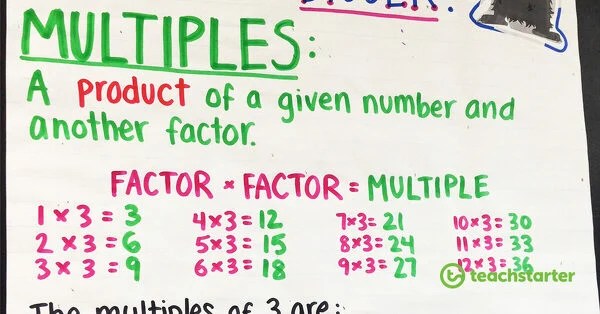 MULTIPLES:
A product of a given number and
another factor.
FACTOR × FACTOR = MULTIPLE
1 × 3 = 3 4 × 3 = 12 7 × 3 = 21 10 × 3 = 30
2 × 3 = 6 5 × 3 = 15 8 × 3 = 24 11 × 3 = 33
3 × 3 = 9 6 × 3 = 18 9 × 3 = 27 12 × 3 = 36
teachstarter
The multiples of 3 are: